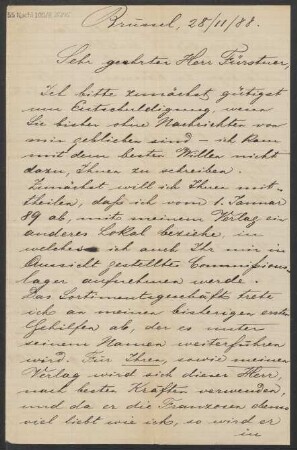 Brüssel, 28/11/88.
Sehr geehrter Herr Fürstner,
Ich bitte zunächst gütigst
um Entschuldigung, wenn
Sie bisher ohne Nachrichten von
mir geblieben sind – ich kam
mit dem besten Willen nicht
dazu, Ihnen zu schreiben.
Zunächst will ich Ihnen mit-
theilen, daß ich vom 1. Januar
89 ab, mit meinem Verlag ein
anderes Lokal beziehe in
welches ich auch Ihr mir in
Aussicht gestelltes Commissions-
lager aufnehmen werde.
Das Sortimentsgeschäft trete
ich an meinen bisherigen ersten
Gehilfen ab, der es unter
seinem Namen weiterführen
wird. Für Ihren, sowie meinen
Verlag wird sich dieser Herr,
nach besten Kräften verwenden,
und da er die Franzosen ebenso
viel liebt wie ich, so wird er
in